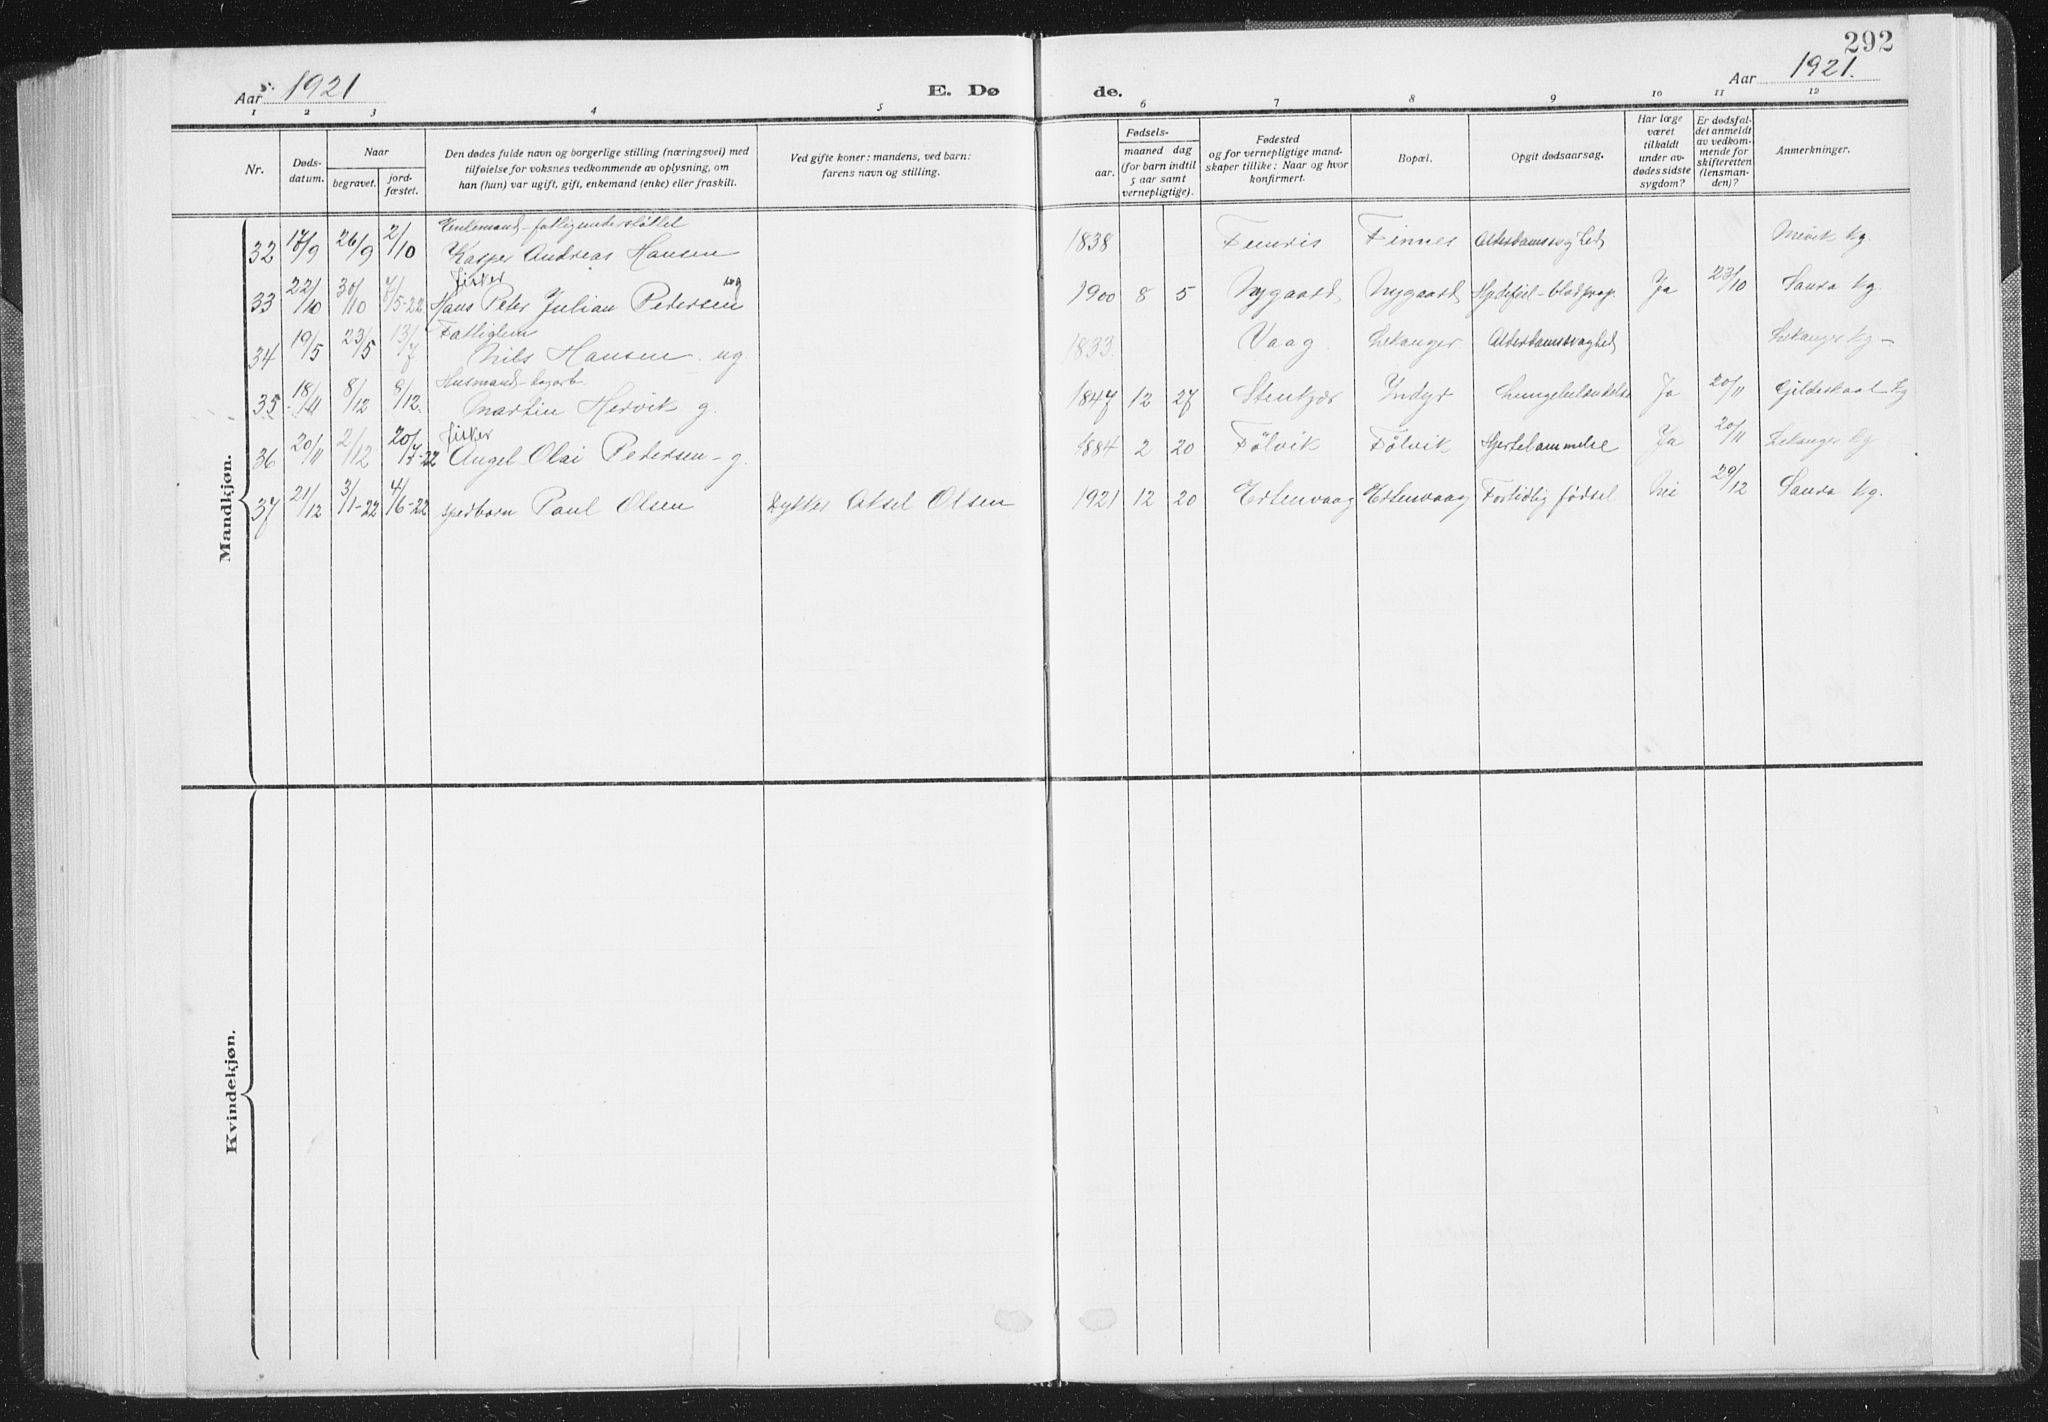 292
Aar 1921
E. Dø de.
Aar 1921.
1 2 3 4 5 6 7 8 9 10 11 12
Nr.
Døds-
datum.
Naar
begravet.
jord-
fæstet.
Den dødes fulde navn og borgerlige stilling (næringsvei) med
tilføielse for voksnes vedkommende av oplysning, om
han (hun) var ugift, gift, enkemand (enke) eller fraskilt.
Ved gifte koner: mandens, ved barn:
farens navn og stilling.
Fødsels-
aar.
maaned dag
(for barn indtil
5 aar samt
vernepligtige).
Fødested
og for vernepligtige mand-
skaper tillike: Naar og hvor
konfirmert.
Bopæl.
Opgit dødsaarsag.
Har læge
været
tilkaldt
under av-
dødes sidste
sygdom?
Er dødsfal-
det anmeldt
av vedkom-
mende for
skifteretten
(lensman-
den)?
Anmerkninger.
Mandkjøn.
Enkemand - fattigunderstøttet
32 17/9 26/9 2/10 Kasper Andreas Hansen 1838 Finnes Alderdomssvaghed Mevik kg.
fisker ug
33 22/10 30/10 7/5-22 Hans Peter Julian Petersen 1900 8 5 Nygaard Nygaard Hjertefeil - blodprop. Ja 23/10 Saura kg.
Fattiglem
34 19/5 23/5 13/7 Nils Hansen ug 1833 Vaag Lekanger Alderdomssvaghed Lekanger kg -
Husmand
35 18/11 8/12 8/12. Martin Hervik g. 1847 12 27 Indyr Lungebetændelse Ja 20/11 Gjildeskaal kg
fisker
36 20/11 2/12 20/7-22 Angel Olai Petersen - g. 1884 2 20 Fölvik Fölvik Hjertelammelse Ja 20/11 Lekanger kg
37 21/12 3/1-22 4/6-22 spedbarn Paul Olsen Dykker Aksel Olsen 1921 12 20 Ertenvaag Ertenvaag Fortidlig födsel Nei 29/12 Saura kg.
Kvindekjøn.